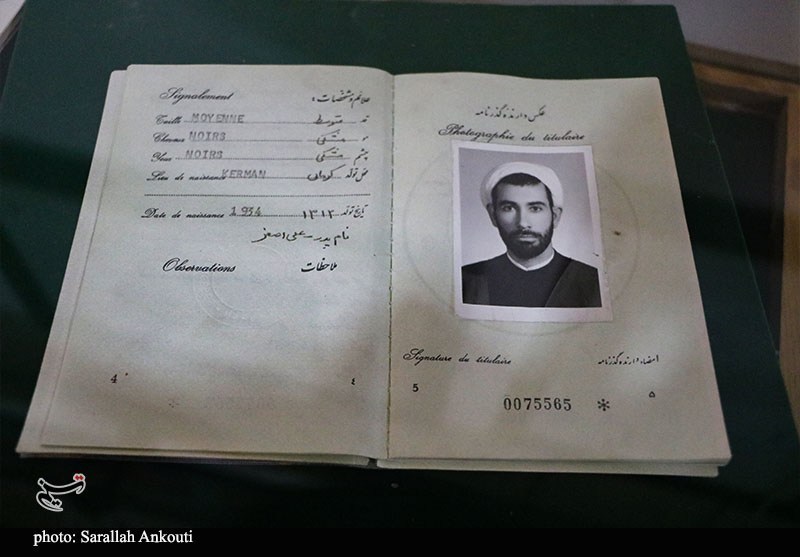 Signalement علائم و مشخصات :
Taille MOYENNE متوسط قد
Cheveux NOIRS مشکی مو
Yeux NOIRS مشکی چشم
Lieu de naissance KERMAN کرمان محل تولد
Date de naissance 1934 ۱۳۱۳ تاریخ تولد
نام پدر علی اصغر
Observations ملاحظات
4 ٤
عکس دارنده گذرنامه
Photographie du titulaire
Signature du titulaire امضاء دارنده گذرنامه
5 ۵
0075565 *
تسنیم
photo: Sarallah Ankouti